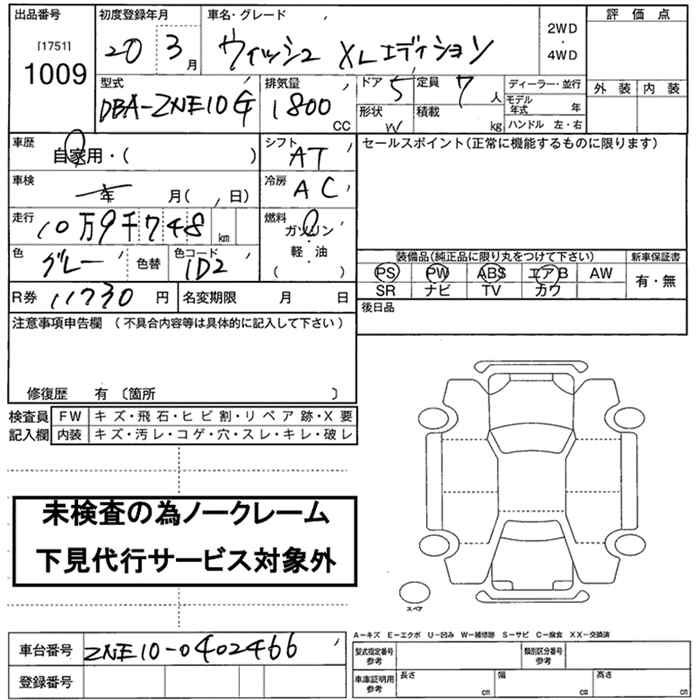 出品番号
[1751]
1009
初度登録年月
20 3月
車名・グレード
ウィッシュ XLエディション
2WD
・
4WD
評価点
外装 内装
型式
DBA-ZNE10G
排気量
1800
CC
ドア 5
形状 W
定員 7人
積載 kg
ディーラー・並行
モデル年式 年
ハンドル 左・右
車歴
自家用・( )
シフト
AT
車検
年 月( 、日)
冷房
AC
走行
10万9千748 km
燃料
ガソリン
・
軽・油
( )
色
グレー
色替
色コード
1D2
R券 11730円
名変期限 月 日
セールスポイント(正常に機能するものに限ります)
装備品(純正品に限り丸をつけて下さい)
新車保証書
PS PW ABS エアB AW
SR ナビ TV カワ
有・無
後日品
注意事項申告欄 (不具合内容等は具体的に記入して下さい)
修復歴 有 〔箇所 〕
検査員
記入欄
FW キズ・飛石・ヒビ割・リペア跡・X要
内装 キズ・汚レ・コゲ・穴・スレ・キレ・破レ
未検査の為ノークレーム
下見代行サービス対象外
スペア
車台番号 ZNE10-0402466
登録番号
A−キズ E−エクボ U−凹み W−補修跡 S−サビ C−腐食 XX−交換済
型式指定番号
参考
類別区分番号
参考
車庫証明用
参考
長さ cm
幅 cm
高さ cm